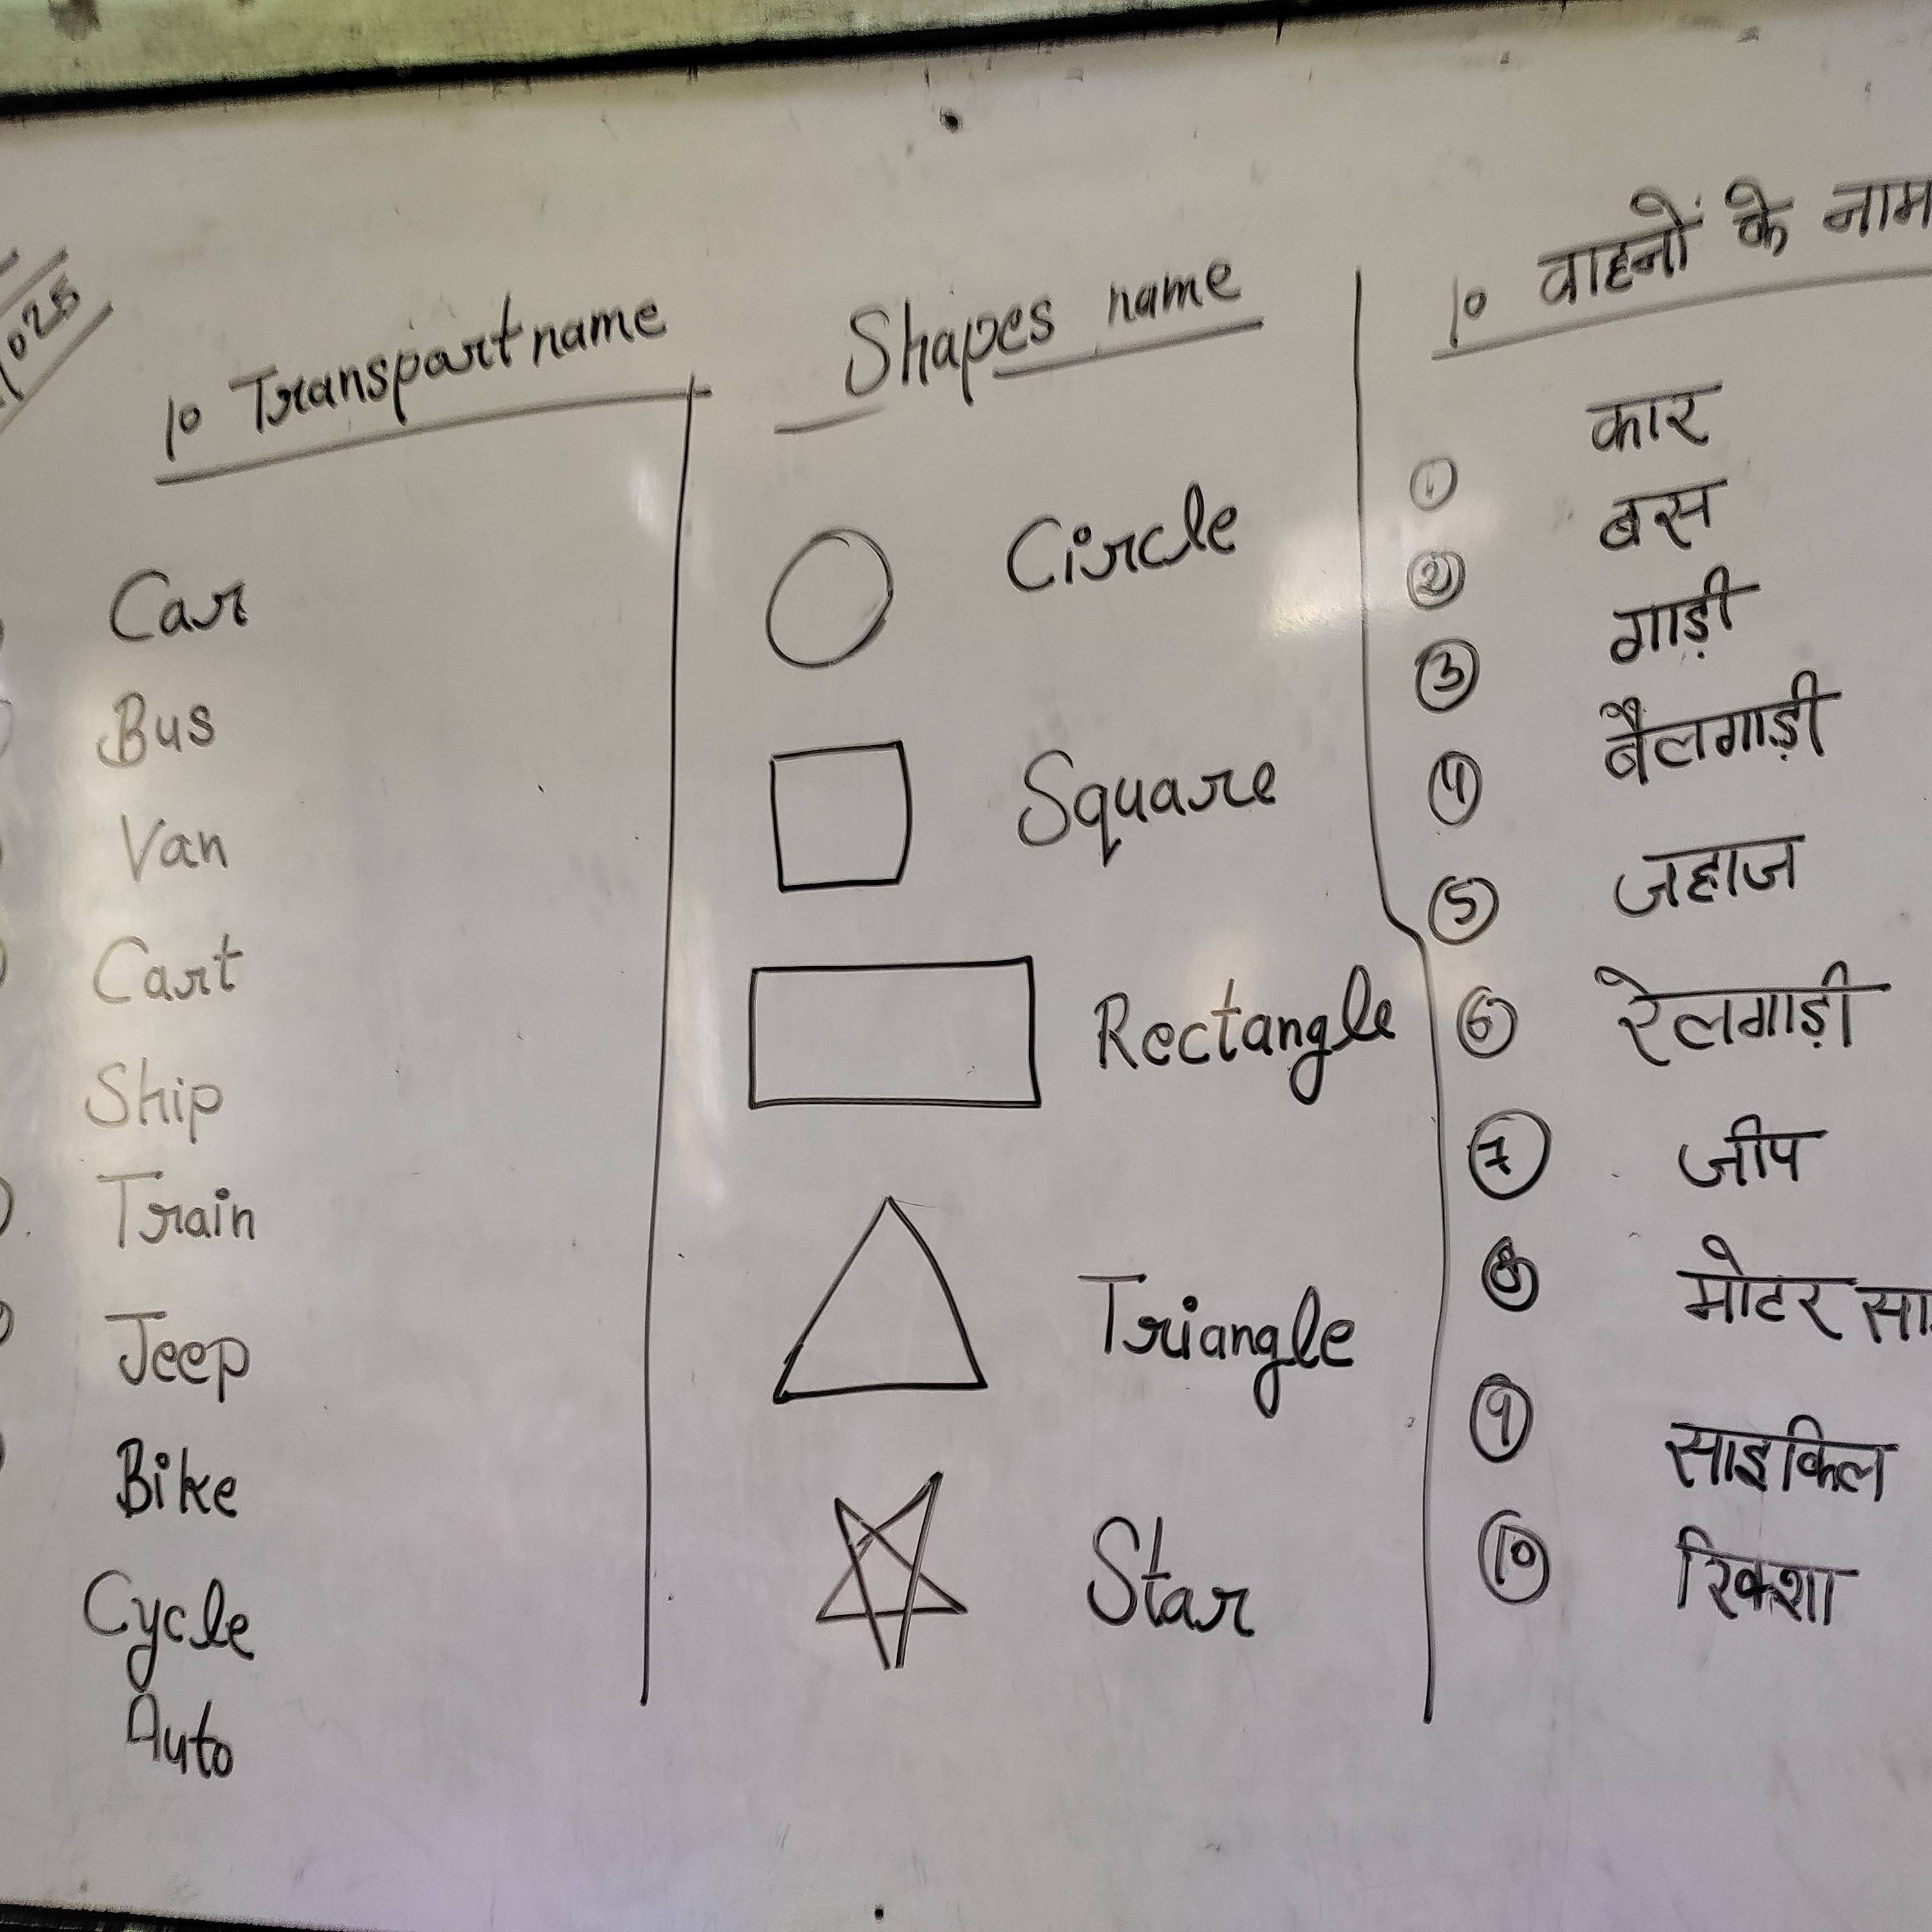 10 Transpart name
Car
Bus
Van
Cart
Ship
Train
Jeep
Bike
Cycle
Auto
Shapes name
Circle
Square
Rectangle
Triangle
Star
10 वाहनों के नाम
① कार
② बस
③ गाड़ी
④ बैलगाड़ी
⑤ जहाज
⑥ रेलगाड़ी
⑦ जीप
⑧ मोटर सा
⑨ साइकिल
⑩ रिक्शा